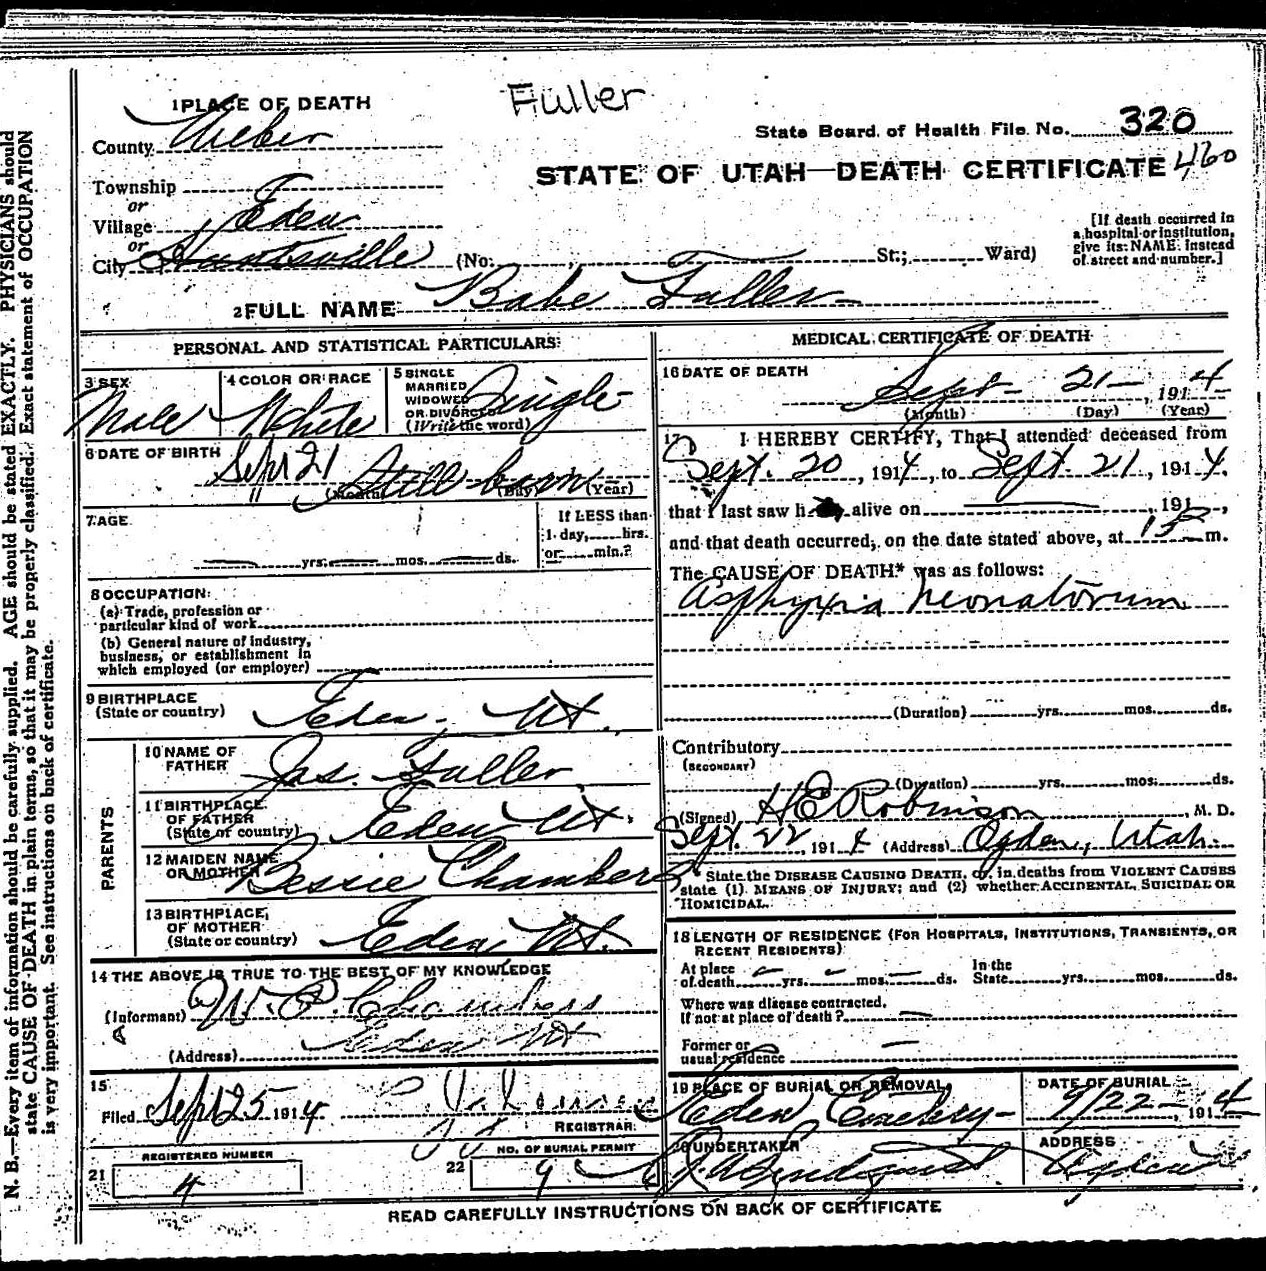 Fuller
1 PLACE OF DEATH
State Board of Health File No. 320
County Weber
STATE OF UTAH—DEATH CERTIFICATE 460
Township
or
Village Eden
or
City Huntsville (No. St.; Ward)
[If death occurred in a hospital or institution, give its NAME instead of street and number.]
2 FULL NAME Babe Fuller
PERSONAL AND STATISTICAL PARTICULARS
3 SEX Male
4 COLOR OR RACE White
5 SINGLE MARRIED WIDOWED OR DIVORCED (Write the word) Single
6 DATE OF BIRTH Sept 21 Still born
(Month) (Day) (Year)
7 AGE yrs. mos. ds.
If LESS than 1 day, hrs. or min.?
8 OCCUPATION:
(a) Trade, profession or particular kind of work
(b) General nature of industry, business, or establishment in which employed (or employer)
9 BIRTHPLACE (State or country) Eden, Ut.
PARENTS
10 NAME OF FATHER Jas. Fuller
11 BIRTHPLACE OF FATHER (State or country) Eden Ut.
12 MAIDEN NAME OR MOTHER Bessie Chambers
13 BIRTHPLACE OF MOTHER (State or country) Eden Ut.
14 THE ABOVE IS TRUE TO THE BEST OF MY KNOWLEDGE
(Informant) W. P. Chambers
(Address) Eden Ut
15
Filed Sept 25 1914
REGISTRAR
21 REGISTERED NUMBER 4
22 NO. OF BURIAL PERMIT 9
MEDICAL CERTIFICATE OF DEATH
16 DATE OF DEATH Sept 21, 1914
(Month) (Day) (Year)
17 I HEREBY CERTIFY, That I attended deceased from
Sept. 20, 1914, to Sept. 21, 1914.
that I last saw h alive on , 191 ,
and that death occurred, on the date stated above, at m.
The CAUSE OF DEATH* was as follows:
Asphyxia Neonatorum
(Duration) yrs. mos. ds.
Contributory
(SECONDARY)
(Duration) yrs. mos. ds.
(Signed) H E Robinson, M. D.
Sept. 22, 1914 (Address) Ogden, Utah.
* State the DISEASE CAUSING DEATH, or, in deaths from VIOLENT CAUSES
state (1) MEANS OF INJURY; and (2) whether ACCIDENTAL, SUICIDAL OR
HOMICIDAL.
18 LENGTH OF RESIDENCE (FOR HOSPITALS, INSTITUTIONS, TRANSIENTS, OR RECENT RESIDENTS)
At place of death yrs. mos. ds. In the State yrs. mos. ds.
Where was disease contracted, If not at place of death?
Former or usual residence
19 PLACE OF BURIAL OR REMOVAL Eden Cemetery
DATE OF BURIAL 9/22, 1914
20 UNDERTAKER
ADDRESS Ogden
READ CAREFULLY INSTRUCTIONS ON BACK OF CERTIFICATE
N. B.—Every item of information should be carefully supplied. AGE should be stated EXACTLY. PHYSICIANS should
state CAUSE OF DEATH in plain terms, so that it may be properly classified. Exact statement of OCCUPATION
is very important. See instructions on back of certificate.